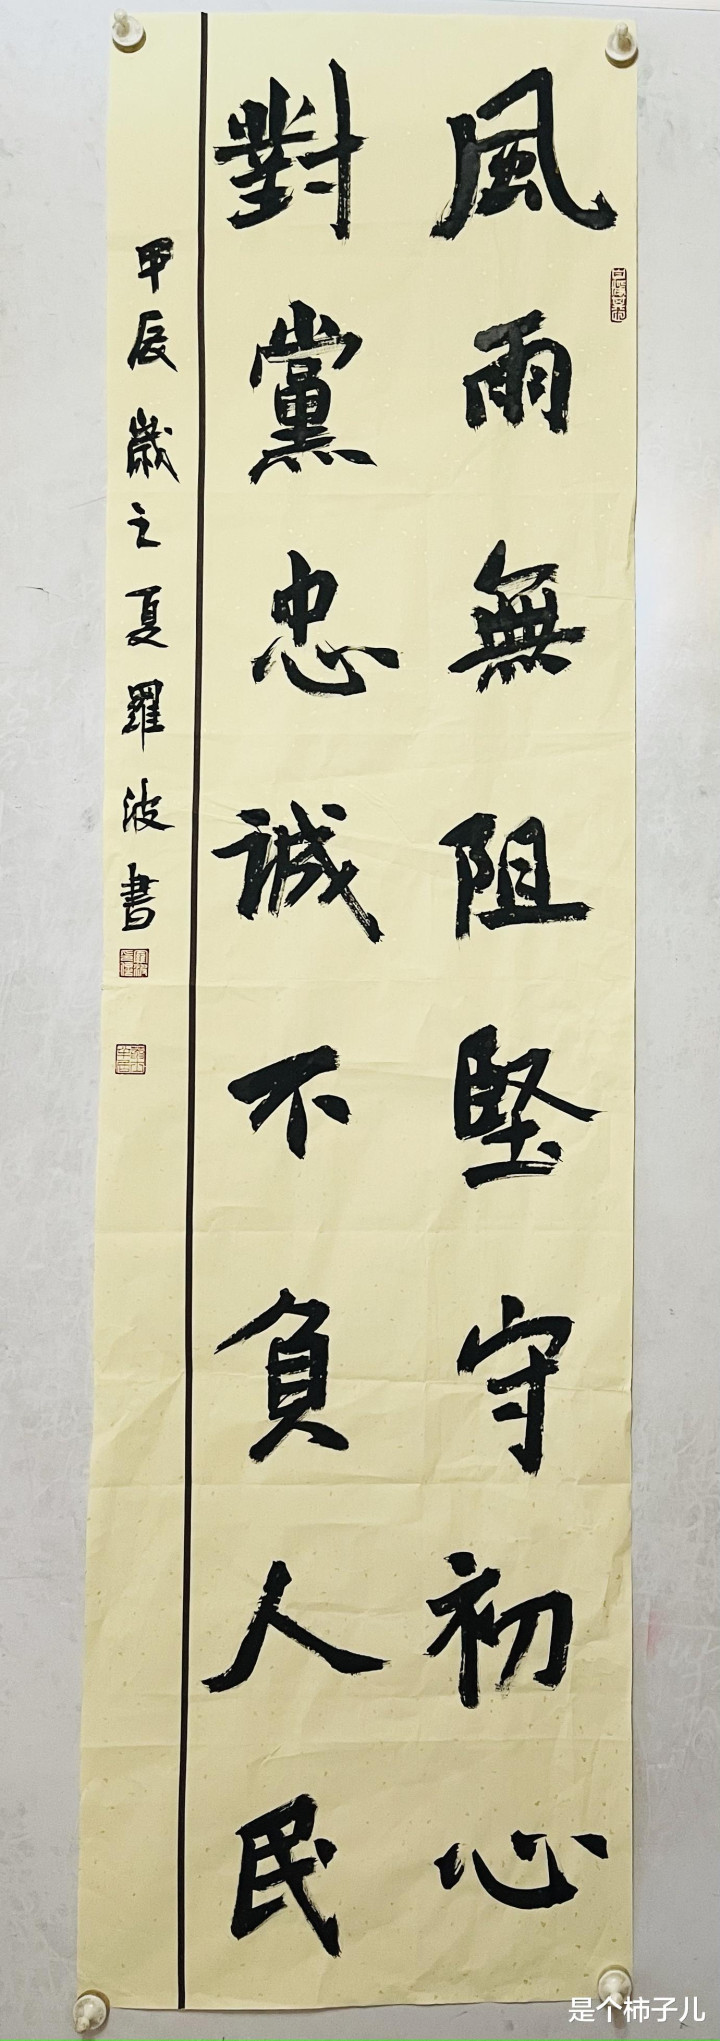 風雨無阻堅守初心
對黨忠誠不負人民
甲辰歲之夏羅波書
是个柿子儿